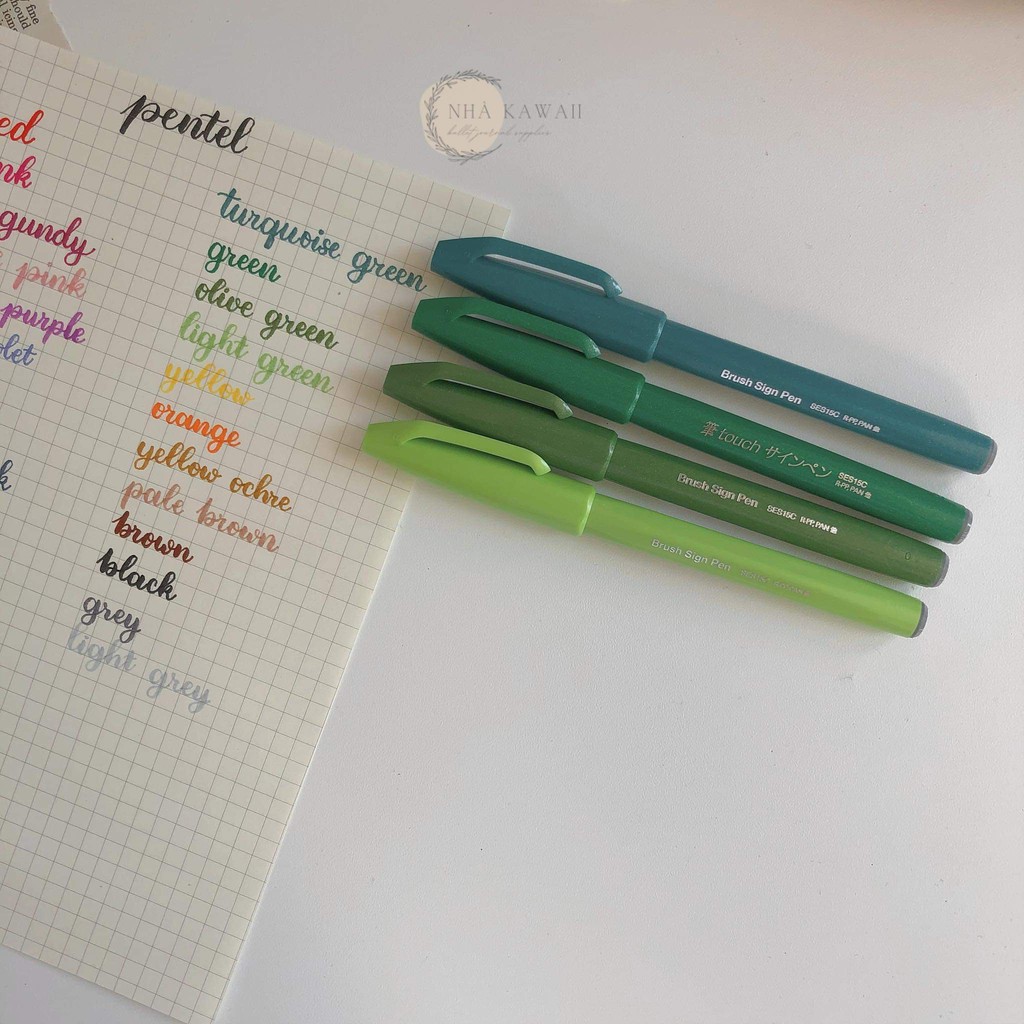 fine
should
NHÀ KAWAII
bullet journal supplies
pentel
ed
nk
gundy
pink
purple
let
k
turquoise green
green
olive green
light green
yellow
orange
yellow ochre
pale brown
brown
black
grey
light grey
Brush Sign Pen SES15C R-PP, PAN
筆touch サインペン SES15C
R-PP, PAN
Brush Sign Pen SES15C R-PP, PAN
Brush Sign Pen